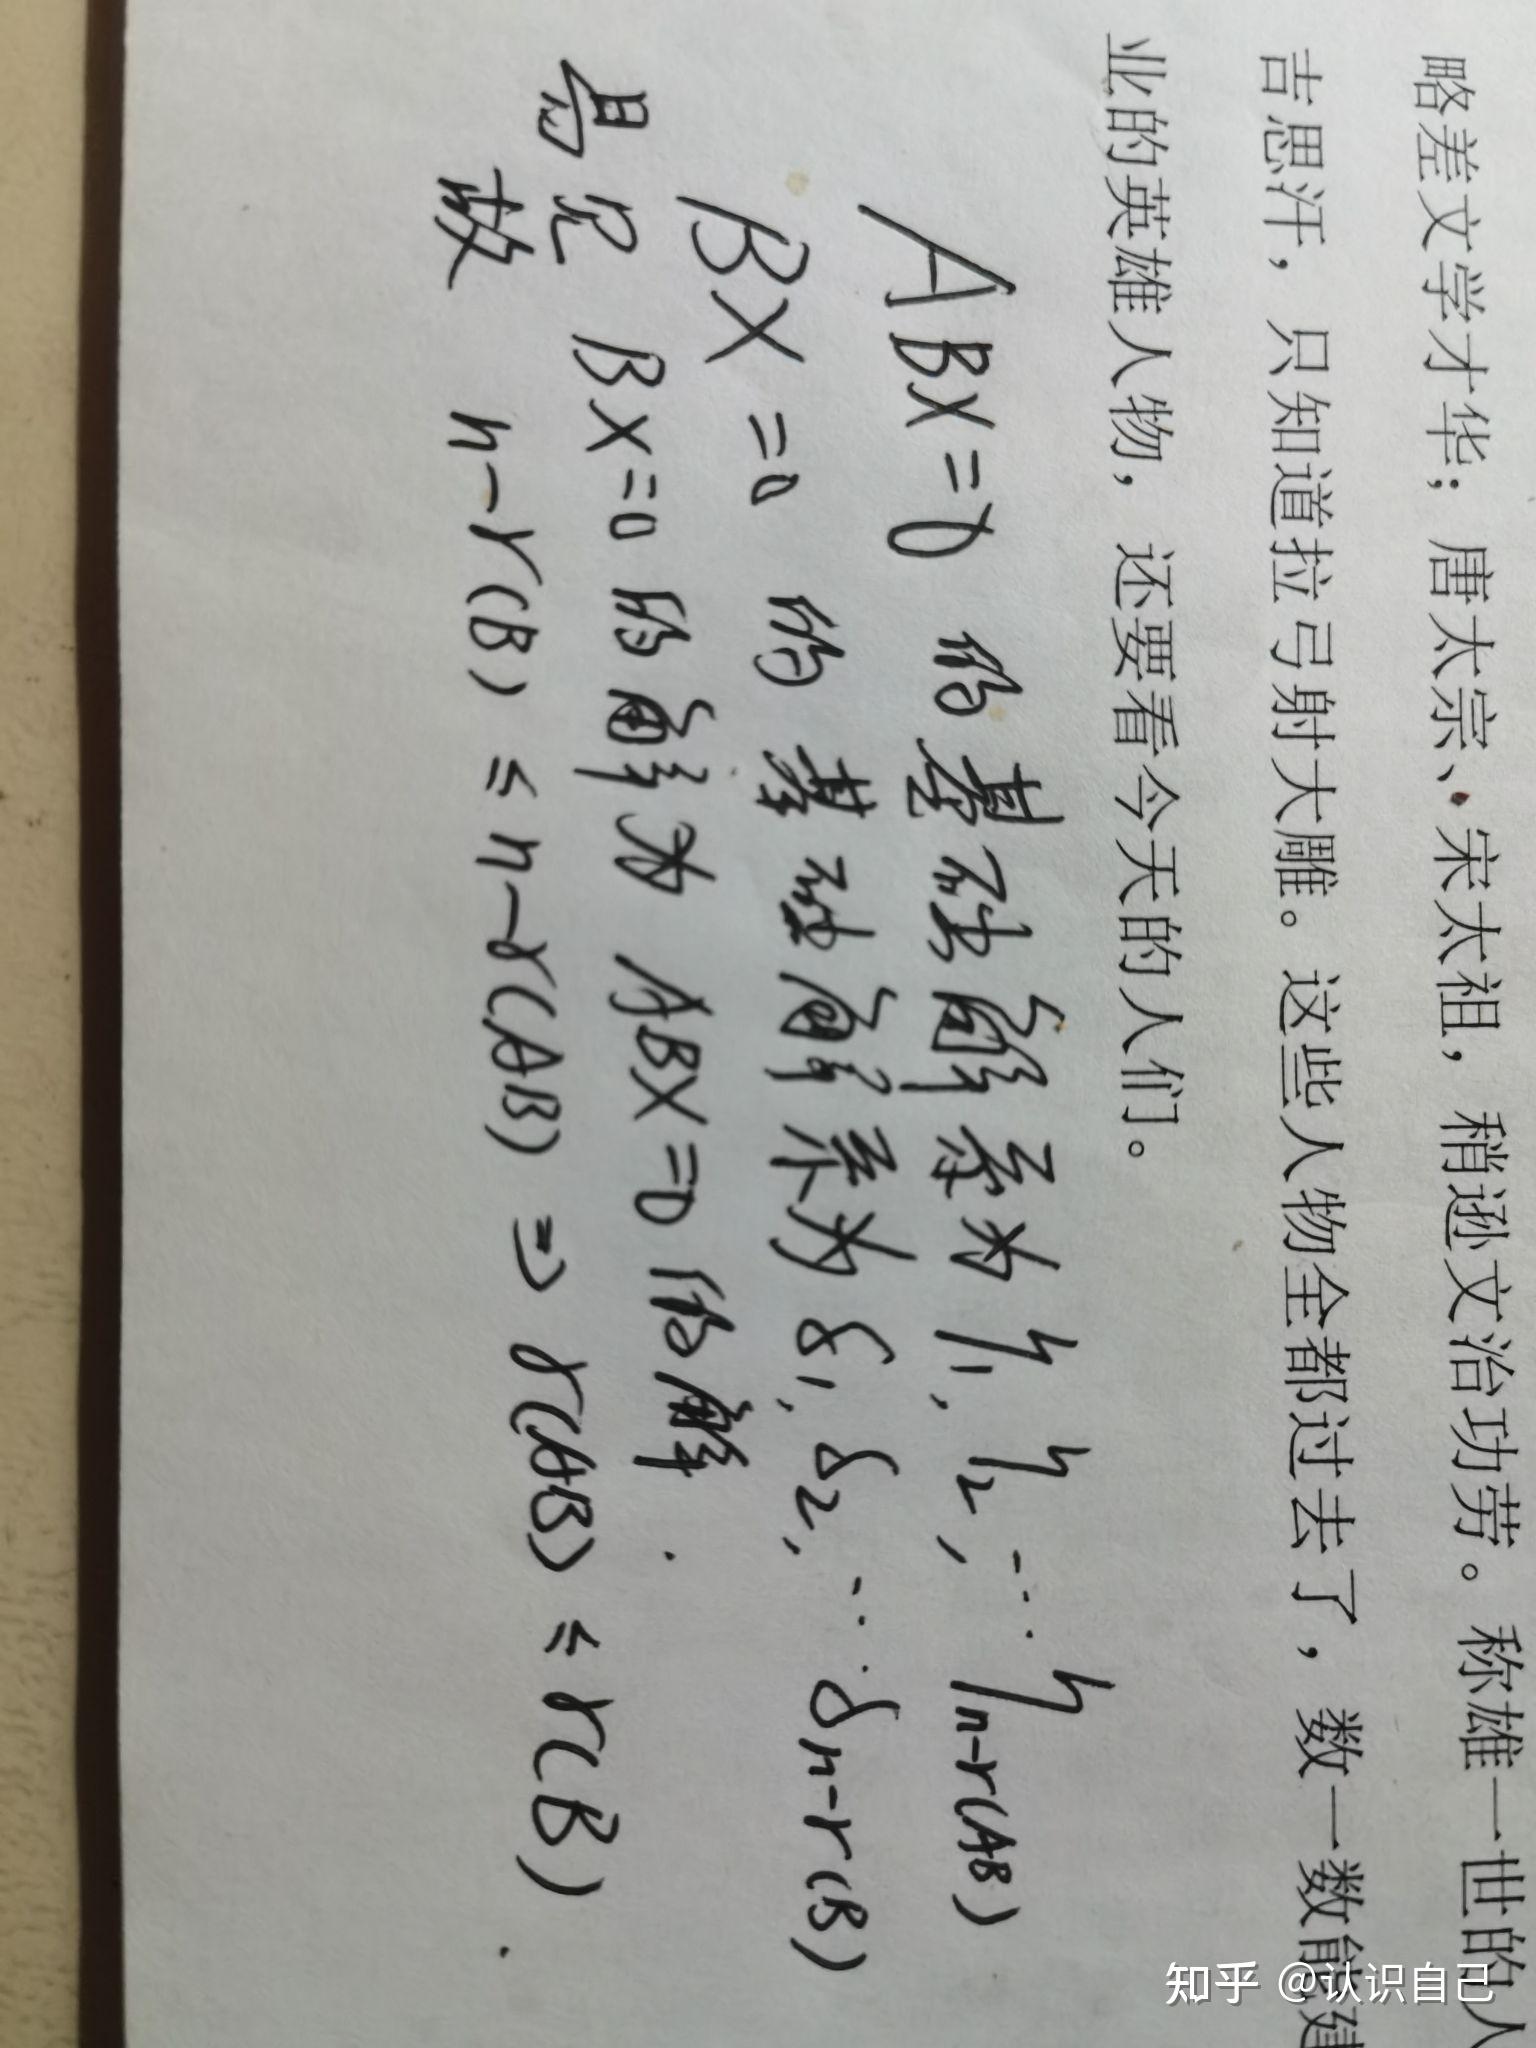 略差文学才华；唐太宗、宋太祖，稍逊文治功劳。称雄一世的人
吉思汗，只知道拉弓射大雕。这些人物全都过去了，数一数能建
业的英雄人物，还要看今天的人们。
ABX=0 的基础解系为 η₁, η₂, ⋯ ηₙ₋ᵣ₍AB₎
BX=0 的基础解系为 δ₁, δ₂, ⋯ δₙ₋ᵣ₍B₎
易见 BX=0 的解为 ABX=0 的解.
故 n-r(B) ≤ n-r(AB) ⇒ r(AB) ≤ r(B).
知乎 @认识自己